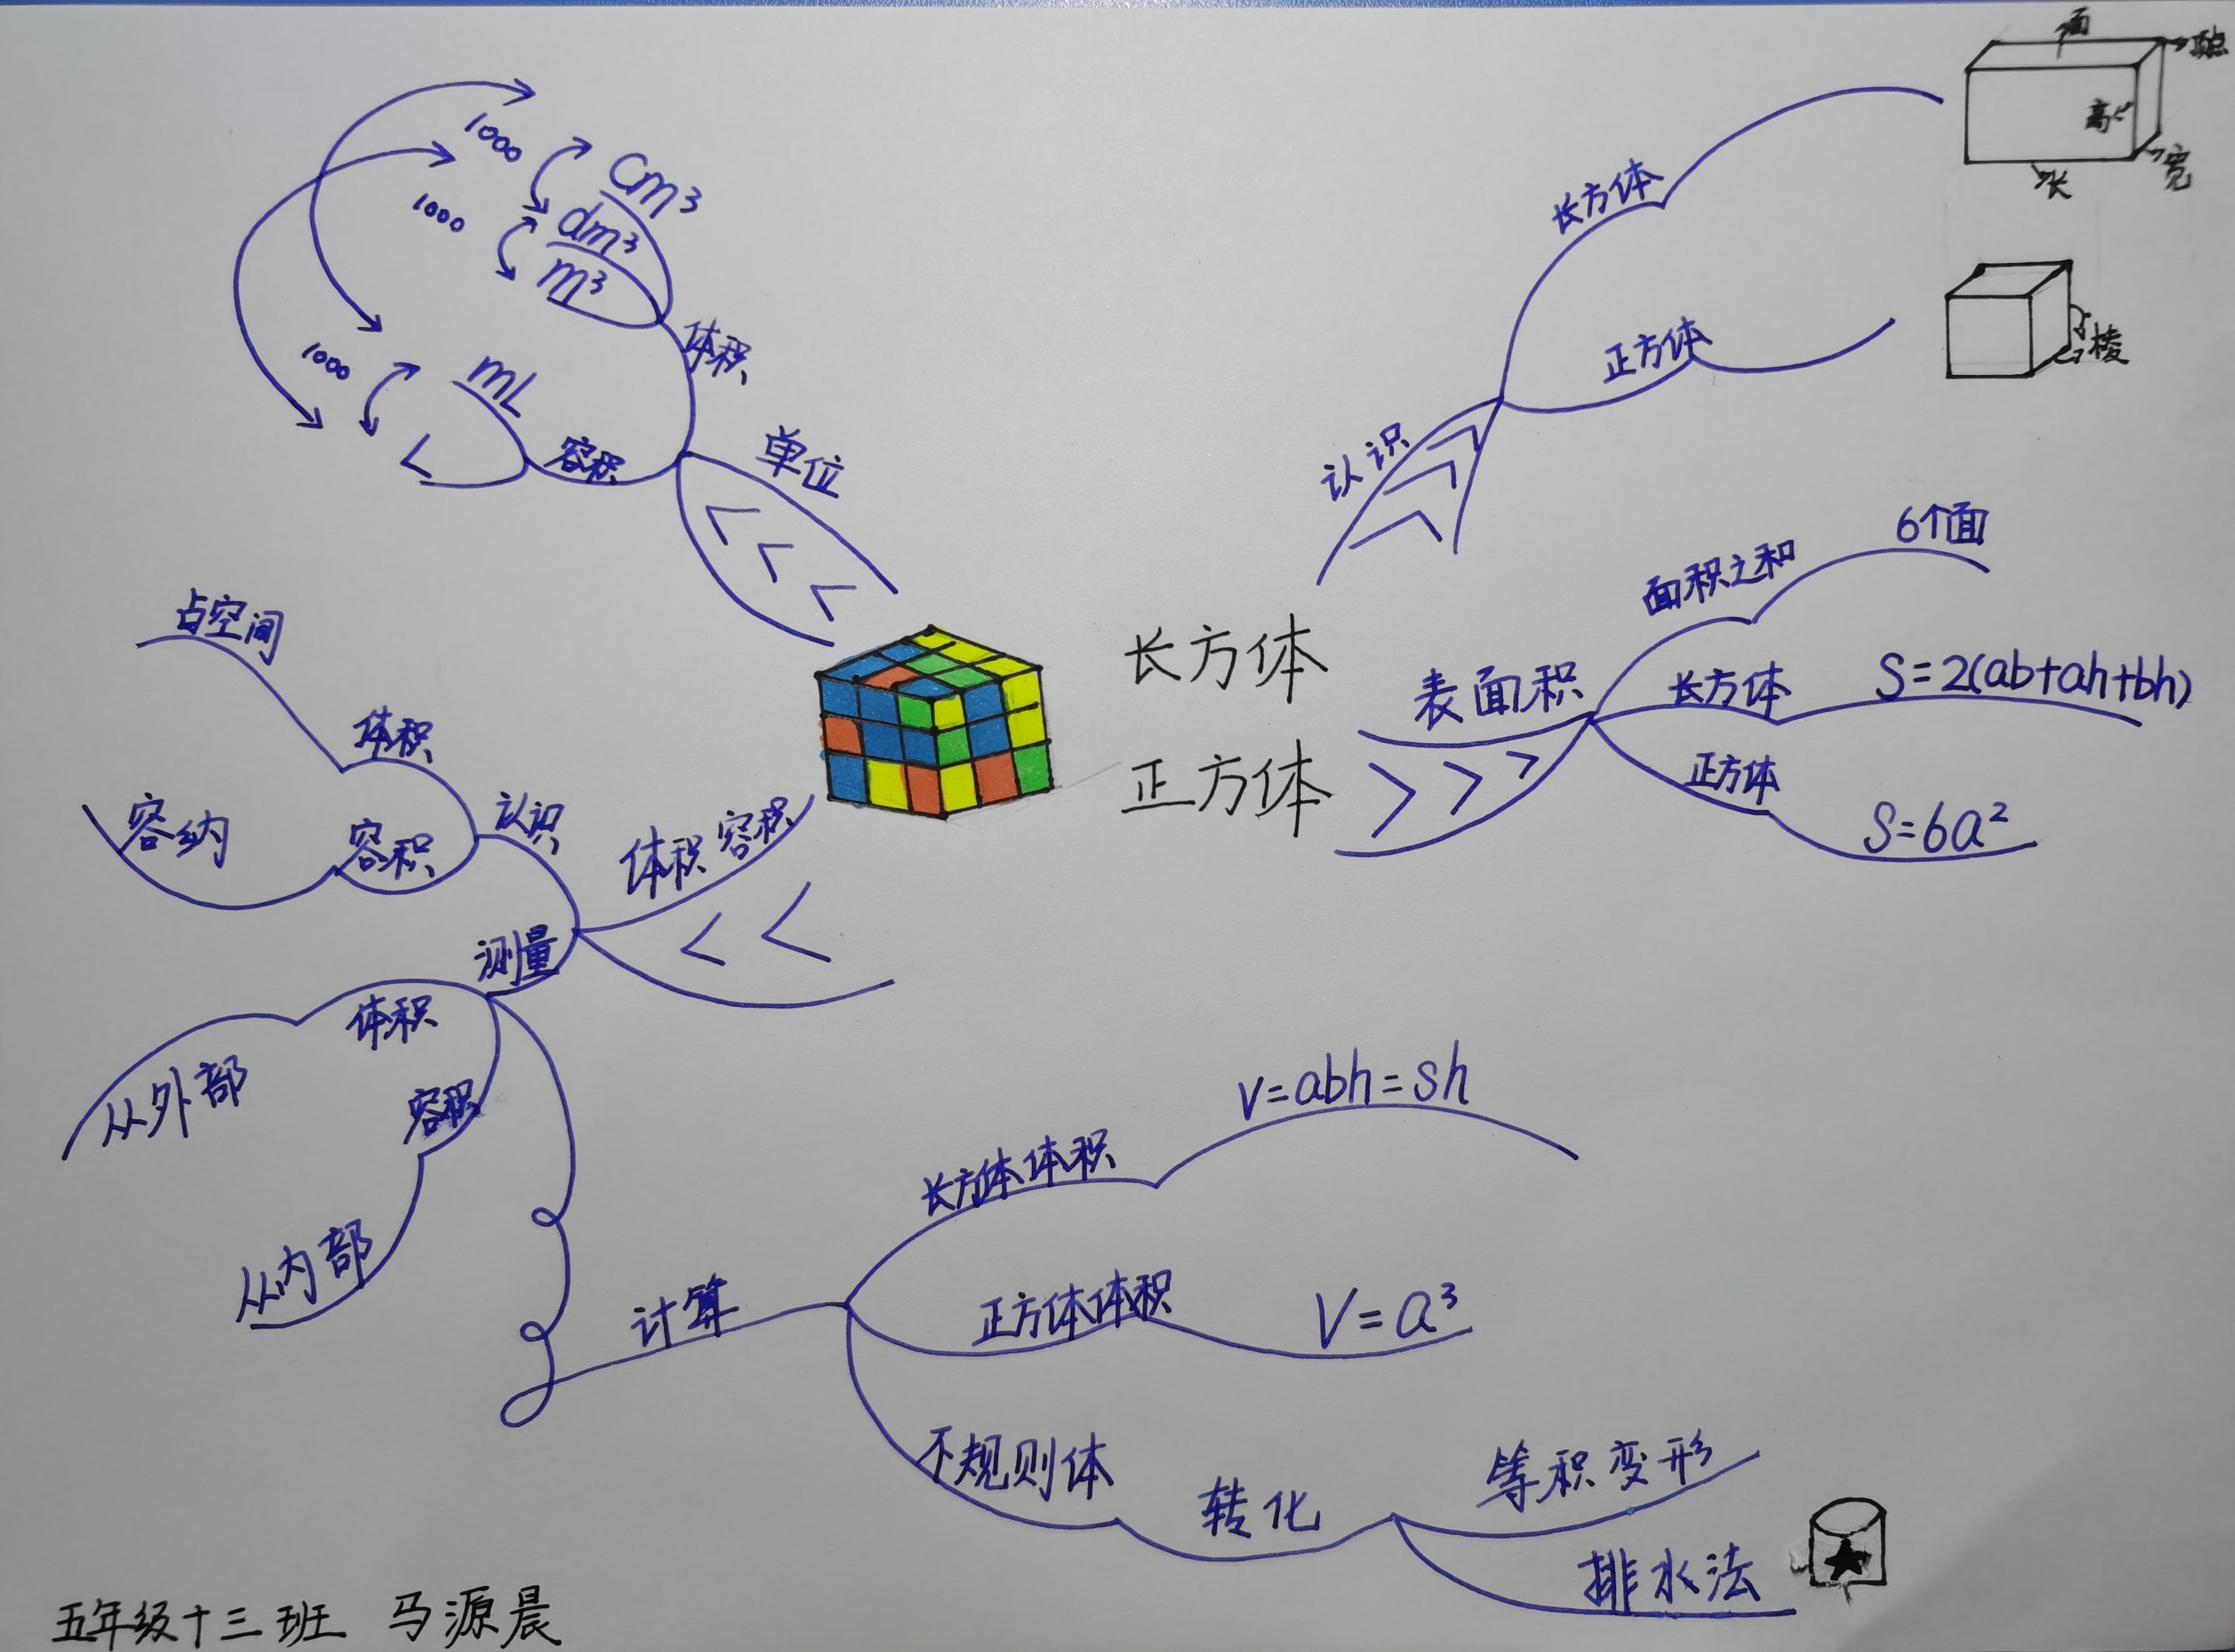 长方体
正方体
认识
长方体
面
顶点
高
宽
长
正方体
棱
表面积
面积之和
6个面
长方体
S=2(ab+ah+bh)
正方体
S=6a²
单位
体积
cm³
dm³
m³
1000
1000
容积
mL
L
1000
体积 容积
认识
体积
占空间
容积
容纳
测量
体积
从外部
容积
从内部
计算
长方体体积
V=abh=Sh
正方体体积
V=a³
不规则体
转化
等积变形
排水法
五年级十三班 马源晨